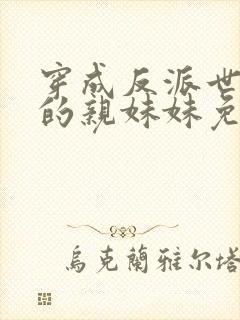 穿成反派世
的親妹妹免
烏克蘭雅尔塔